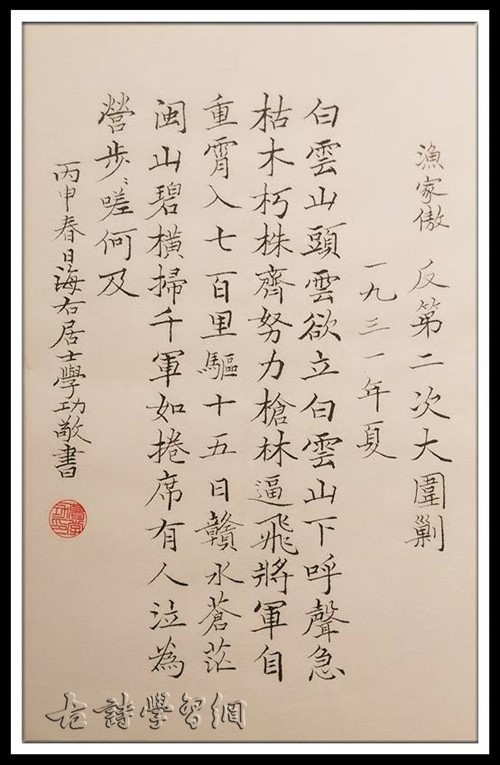 漁家傲 反第二次大圍剿
一九三一年夏
白雲山頭雲欲立白雲山下呼聲急
枯木朽株齊努力槍林逼飛將軍自
重霄入七百里驅十五日贛水蒼茫
閩山碧橫掃千軍如捲席有人泣為
營步々嗟何及
丙申春日海右居士學功敬書
古詩學習網